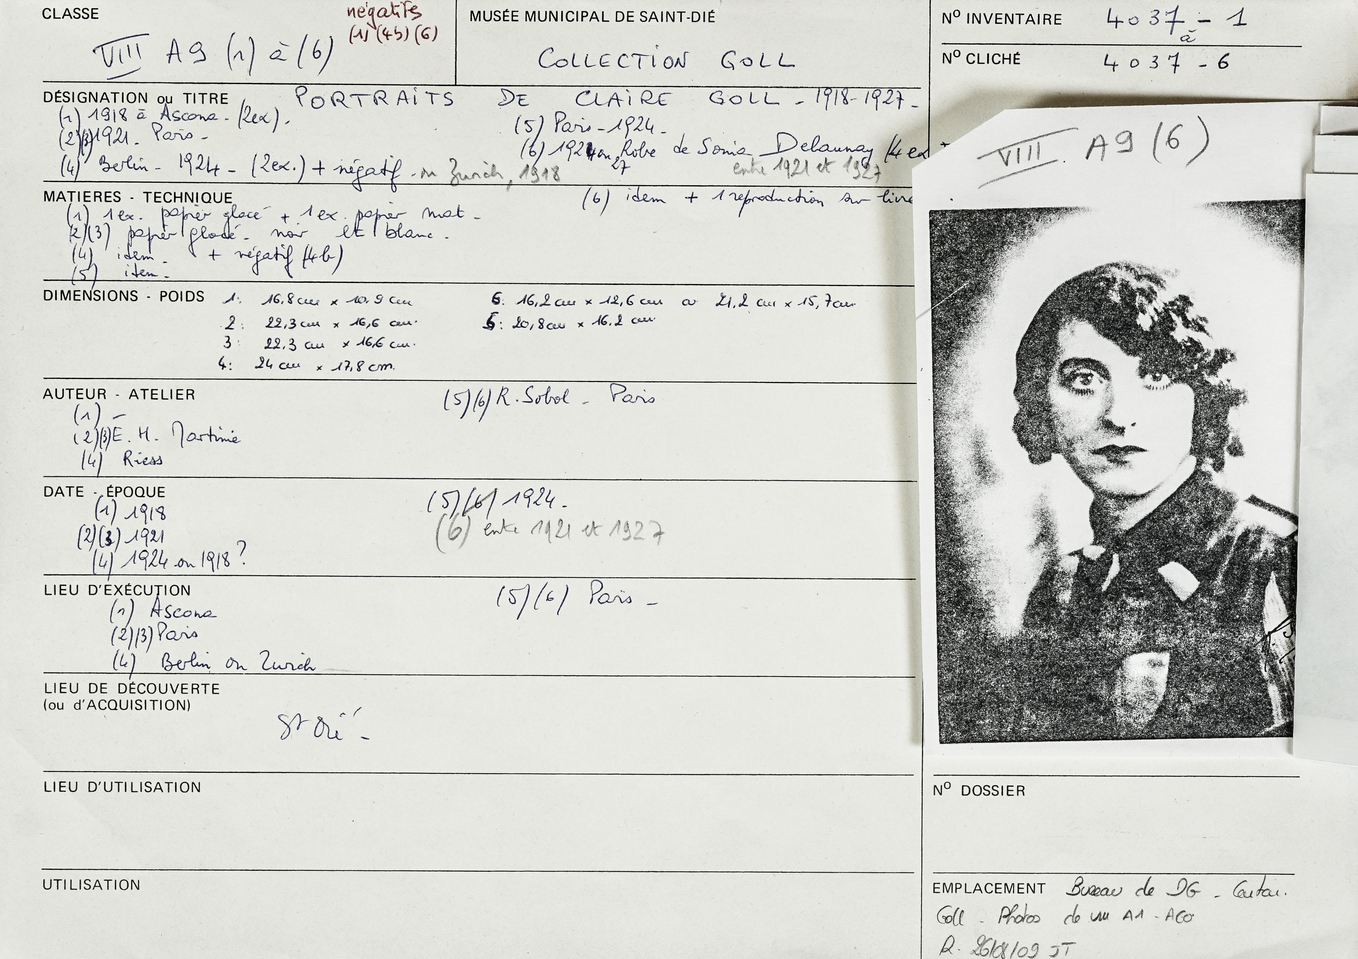 CLASSE
négatifs
(1) (4b) (6)
VIII A9 (1) à (6)
MUSÉE MUNICIPAL DE SAINT-DIÉ
COLLECTION GOLL
N° INVENTAIRE 4037 - 1
à
N° CLICHÉ 4037 - 6
DÉSIGNATION ou TITRE PORTRAITS DE CLAIRE GOLL - 1918-1927-
(1) 1918 à Ascona - (2ex).
(2)(3) 1921. Paris -
(4) Berlin - 1924 - (2ex.) + négatif - ou Zurich, 1918
(5) Paris - 1924 -
(6) 1924 ou 27 Robe de Sonia Delaunay (4 ex
entre 1921 et 1927
MATIERES - TECHNIQUE
(1) 1 ex. papier glacé + 1 ex. papier mat -
(2)(3) papier glacé - noir et blanc -
(4) idem - + négatif (4b)
(5) idem -
(6) idem + 1 reproduction sur livre
DIMENSIONS - POIDS
1: 16,8 cm x 10,9 cm
2: 22,3 cm x 16,6 cm.
3: 22,3 cm x 16,6 cm.
4: 24 cm x 17,8 cm.
6: 16,2 cm x 12,6 cm ou 21,2 cm x 15,7 cm
5: 20,8 cm x 16,2 cm
AUTEUR - ATELIER
(1) -
(2)(3) E. H. Martinie
(4) Riess
(5)(6) R. Sobol - Paris
DATE - ÉPOQUE
(1) 1918
(2)(3) 1921
(4) 1924 ou 1918 ?
(5)(6) 1924 -
(6) entre 1921 et 1927
LIEU D'EXÉCUTION
(1) Ascona
(2)(3) Paris
(4) Berlin ou Zurich
(5)(6) Paris -
LIEU DE DÉCOUVERTE
(ou d'ACQUISITION)
St Dié -
LIEU D'UTILISATION
UTILISATION
VIII. A9 (6)
N° DOSSIER
EMPLACEMENT Bureau de DG -
Goll - Photos de A1 -
R. 26/08/09 JT